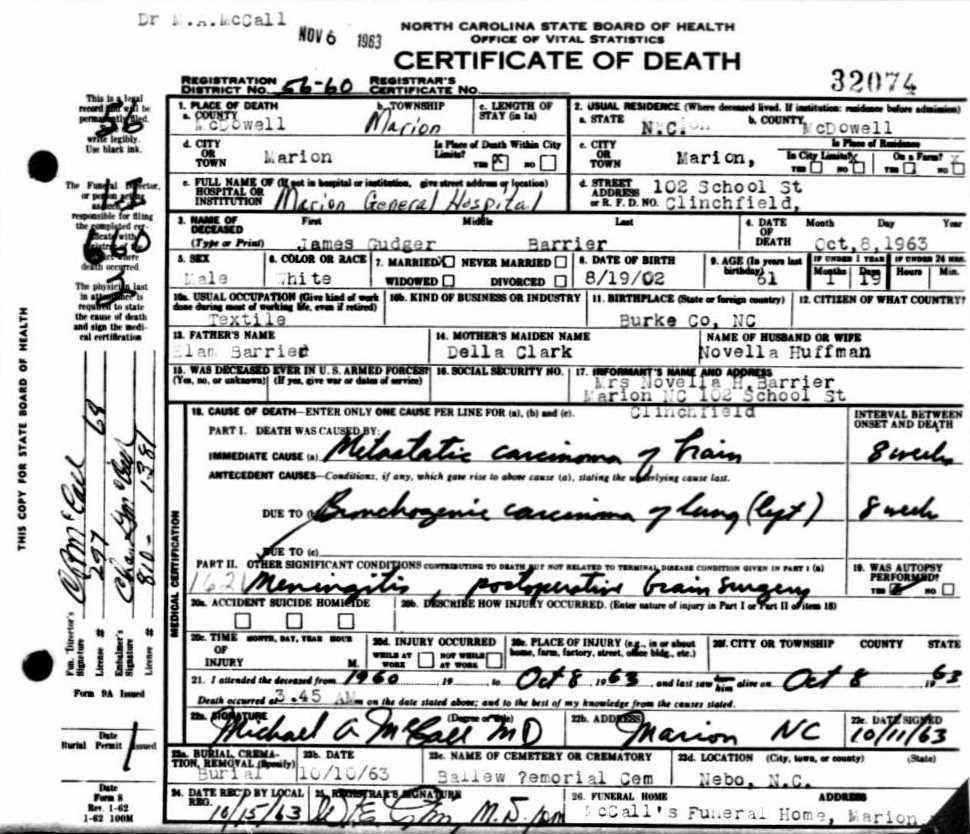 Dr M.A.McCall
NOV 6 1963
NORTH CAROLINA STATE BOARD OF HEALTH
OFFICE OF VITAL STATISTICS
CERTIFICATE OF DEATH
32074
REGISTRATION DISTRICT NO. 56-60 REGISTRAR'S CERTIFICATE NO.
This is a legal record and will be permanently filed.
write legibly.
Use black ink.
1. PLACE OF DEATH
a. COUNTY McDowell
b. TOWNSHIP Marion
c. LENGTH OF STAY (in 1a)
2. USUAL RESIDENCE (Where deceased lived. If institution: residence before admission)
a. STATE N.C.
b. COUNTY McDowell
d. CITY OR TOWN Marion
Is Place of Death Within City Limits? YES X NO
c. CITY OR TOWN Marion,
Is Place of Residence
In City Limits? YES NO
On a Farm? YES NO
e. FULL NAME OF (If not in hospital or institution, give street address or location) HOSPITAL OR INSTITUTION Marion General Hospital
d. STREET ADDRESS OR R. F. D. NO. 102 School St
Clinchfield,
3. NAME OF DECEASED (Type or Print)
First Middle Last
James Gudger Barrier
4. DATE OF DEATH Month Day Year
Oct,8,1963
5. SEX Male
6. COLOR OR RACE White
7. MARRIED X NEVER MARRIED
WIDOWED DIVORCED
8. DATE OF BIRTH 8/19/02
9. AGE (In years last birthday) 61
IF UNDER 1 YEAR Months 1 Days 19
IF UNDER 24 HRS. Hours Min.
10a. USUAL OCCUPATION (Give kind of work done during most of working life, even if retired) Textile
10b. KIND OF BUSINESS OR INDUSTRY
11. BIRTHPLACE (State or foreign country) Burke Co, NC
12. CITIZEN OF WHAT COUNTRY?
13. FATHER'S NAME Elam Barrier
14. MOTHER'S MAIDEN NAME Della Clark
NAME OF HUSBAND OR WIFE Novella Huffman
15. WAS DECEASED EVER IN U. S. ARMED FORCES?
(Yes, no, or unknown) (If yes, give war or dates of service)
16. SOCIAL SECURITY NO.
17. INFORMANT'S NAME AND ADDRESS
Mrs Novella H.Barrier
Marion NC 102 School St
Clinchfield
18. CAUSE OF DEATH—ENTER ONLY ONE CAUSE PER LINE FOR (a), (b) and (c).
INTERVAL BETWEEN ONSET AND DEATH
PART I. DEATH WAS CAUSED BY:
IMMEDIATE CAUSE (a) Metastatic carcinoma of brain 8 weeks
ANTECEDENT CAUSES—Conditions, if any, which gave rise to above cause (a), stating the underlying cause last.
DUE TO (b) Bronchogenic carcinoma of lung (left) 8 week
DUE TO (c)
PART II. OTHER SIGNIFICANT CONDITIONS CONTRIBUTING TO DEATH BUT NOT RELATED TO TERMINAL DISEASE CONDITION GIVEN IN PART I (a)
1621 Meningitis, postoperative brain surgery
19. WAS AUTOPSY PERFORMED? YES NO
MEDICAL CERTIFICATION
20a. ACCIDENT SUICIDE HOMICIDE
20b. DESCRIBE HOW INJURY OCCURRED. (Enter nature of injury in Part I or Part II of item 18)
20c. TIME OF INJURY MONTH, DAY, YEAR HOUR M.
20d. INJURY OCCURRED WHILE AT WORK NOT WHILE AT WORK
20e. PLACE OF INJURY (e.g., in or about home, farm, factory, street, office bldg., etc.)
20f. CITY OR TOWNSHIP COUNTY STATE
21. I attended the deceased from 1960, 19 to Oct 8, 1963, and last saw him alive on Oct 8 1963
Death occurred at 3.45 AM m on the date stated above; and to the best of my knowledge from the causes stated.
22a. SIGNATURE (Degree or title) Michael A McCall MD
22b. ADDRESS Marion NC
22c. DATE SIGNED 10/11/63
23a. BURIAL, CREMATION, REMOVAL (Specify) Burial
23b. DATE 10/10/63
23c. NAME OF CEMETERY OR CREMATORY Ballew ?emorial Cem
23d. LOCATION (City, town, or county) (State) Nebo, N.C.
24. DATE REC'D BY LOCAL REG. 10/15/63
25. REGISTRAR'S SIGNATURE M.D.
26. FUNERAL HOME ADDRESS
McCall's Funeral Home, Marion
56
The Funeral Director, or person acting as such
responsible for filing the completed certificate with
registrar of
where death occurred
660
The physician last in attendance is required to state the cause of death and sign the medical certification
THIS COPY FOR STATE BOARD OF HEALTH
Fun. Director's Signature
License # 297
Embalmer's Signature
License # 810-1381
Form 9A Issued
Date
Burial Permit Issued
Date
Form 8
Rev. 1-62
1-62 100M